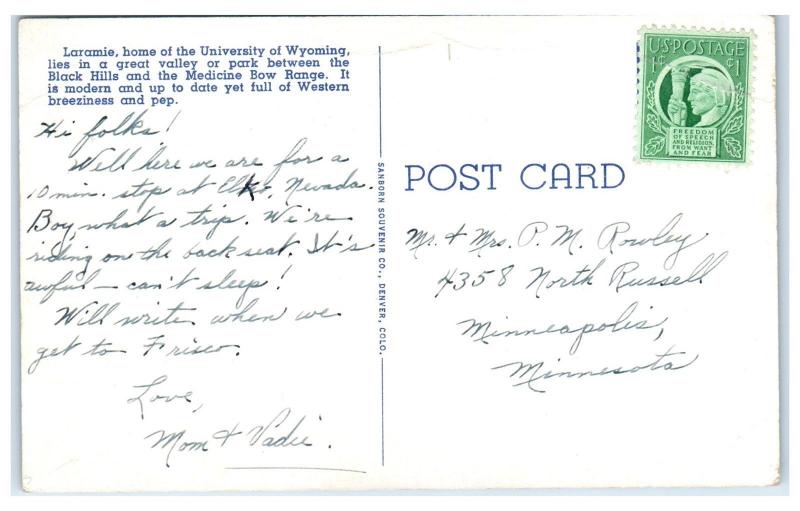 Laramie, home of the University of Wyoming,
lies in a great valley or park between the
Black Hills and the Medicine Bow Range. It
is modern and up to date yet full of Western
breeziness and pep.
Hi folks!
Well here we are for a
10 min. stop at Elko, Nevada.
Boy, what a trip. We're
riding on the back seat. It's
awful – can't sleep!
Will write when we
get to Frisco.
Love,
Mom + Vadie.
SANBORN SOUVENIR CO., DENVER, COLO.
POST CARD
Mr. + Mrs. P. M. Rowley
4358 North Russell
Minneapolis,
Minnesota
U.S. POSTAGE
1¢ ¢1
FREEDOM
OF SPEECH
AND RELIGION,
FROM WANT
AND FEAR